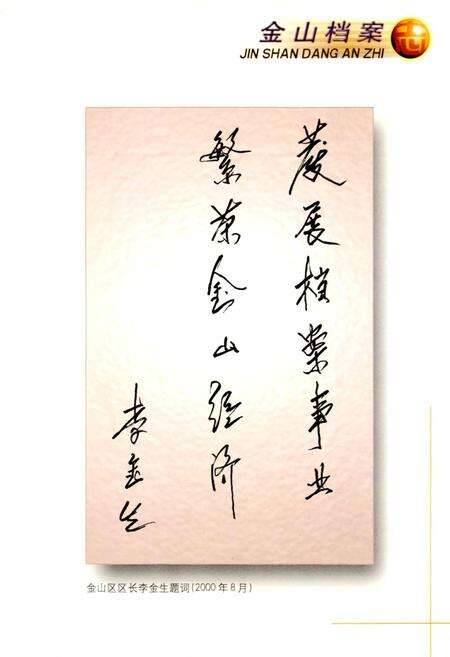 金山档案志
JIN SHAN DANG AN ZHI
發展档案事业
繁荣金山经济
李金生
金山区区长李金生题词(2000年8月)